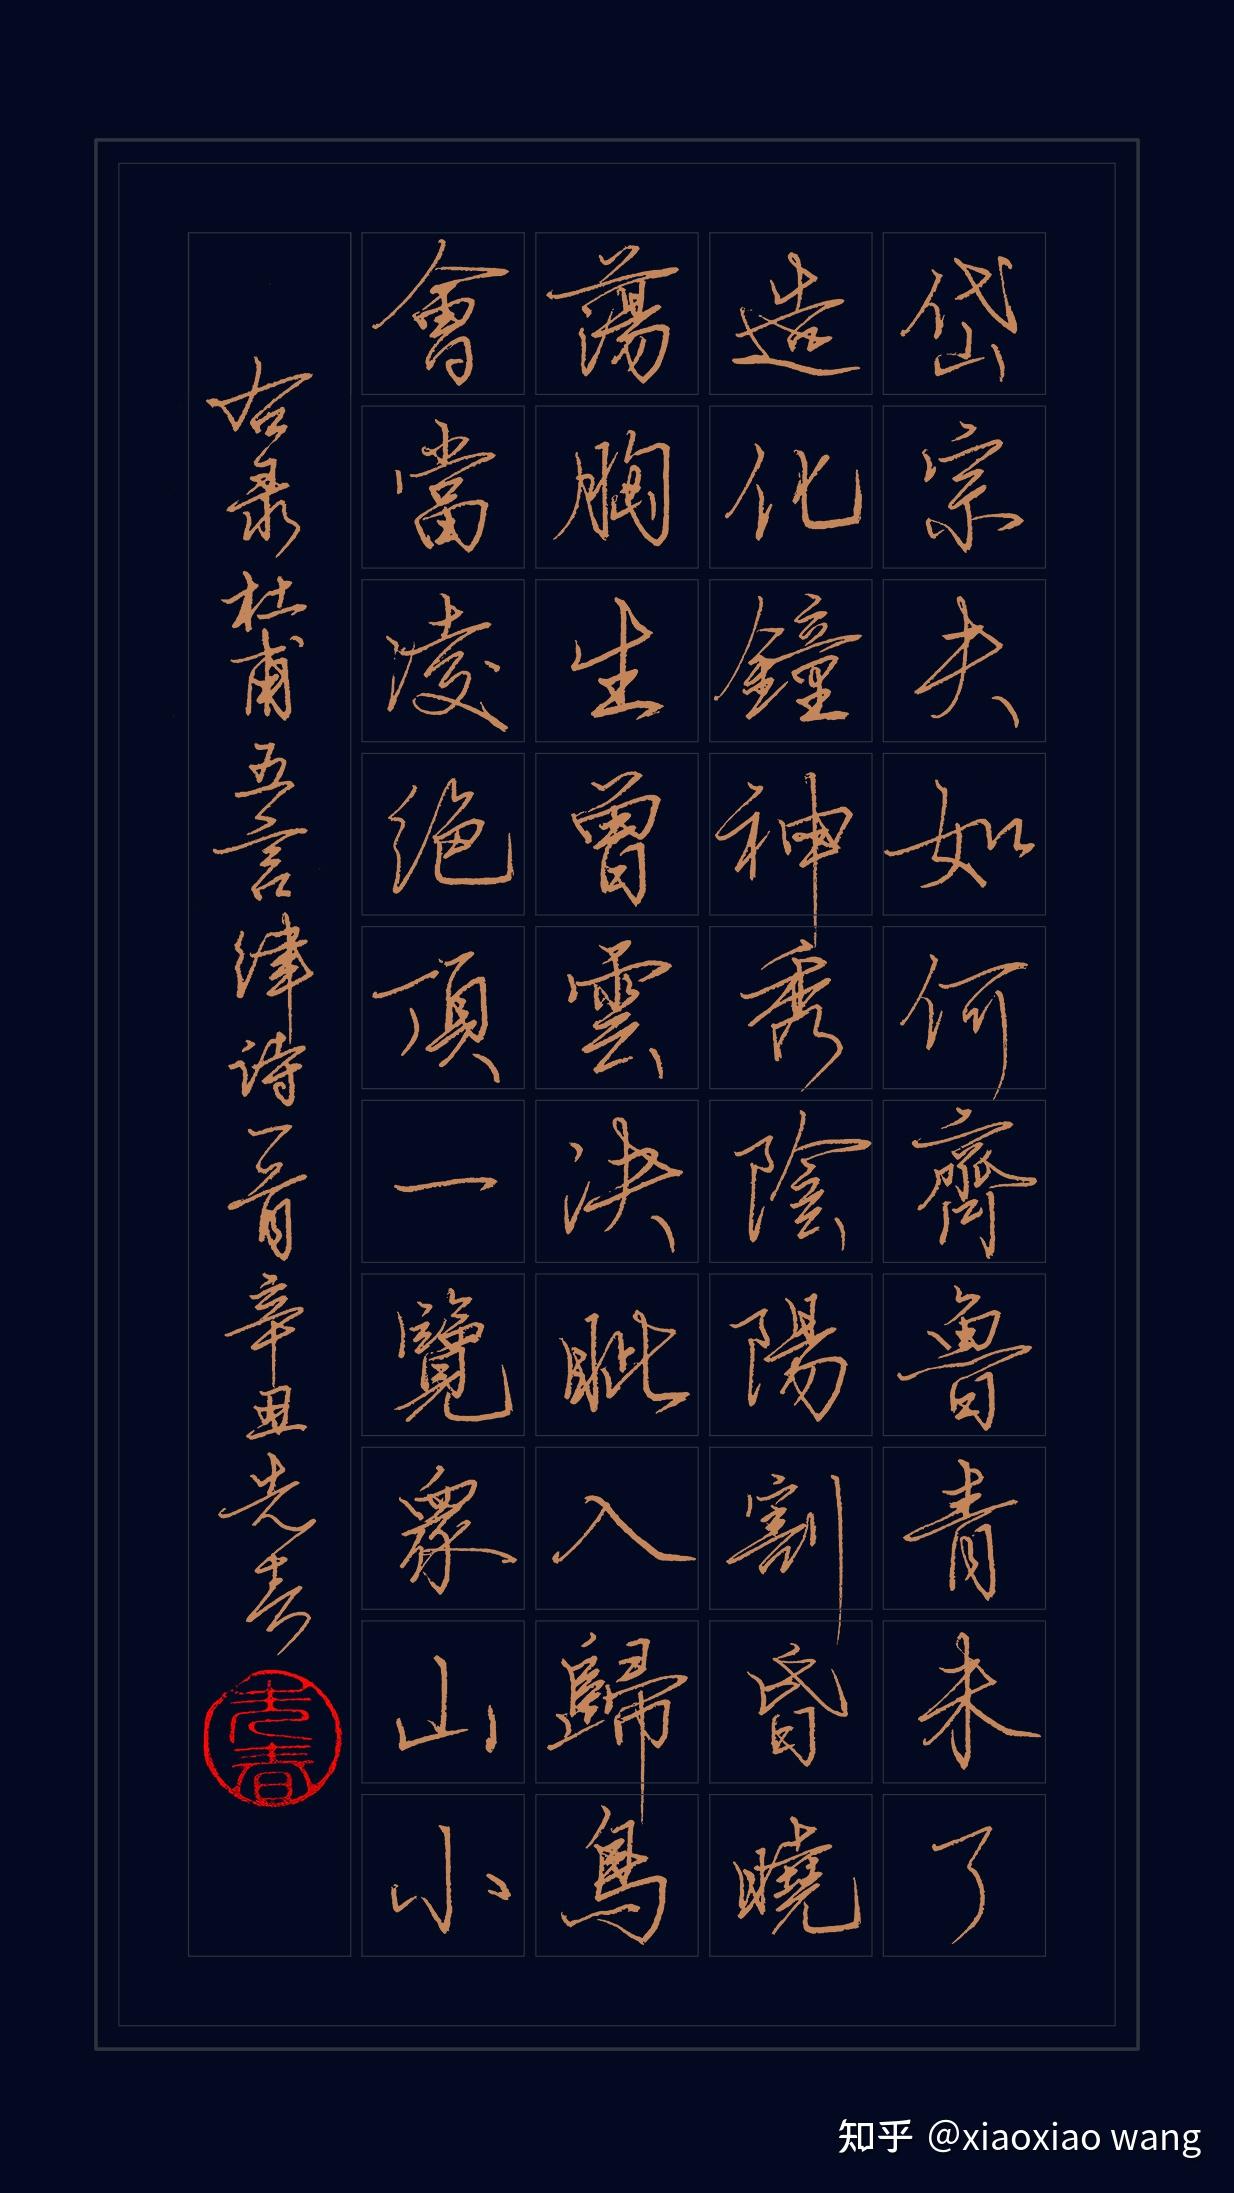 岱宗夫如何齊魯青未了
造化鐘神秀陰陽割昏曉
蕩胸生曾雲決眦入歸鳥
會當凌绝頂一覽衆山小
右录杜甫五言律诗一首辛丑先春
先春
知乎 @xiaoxiao wang